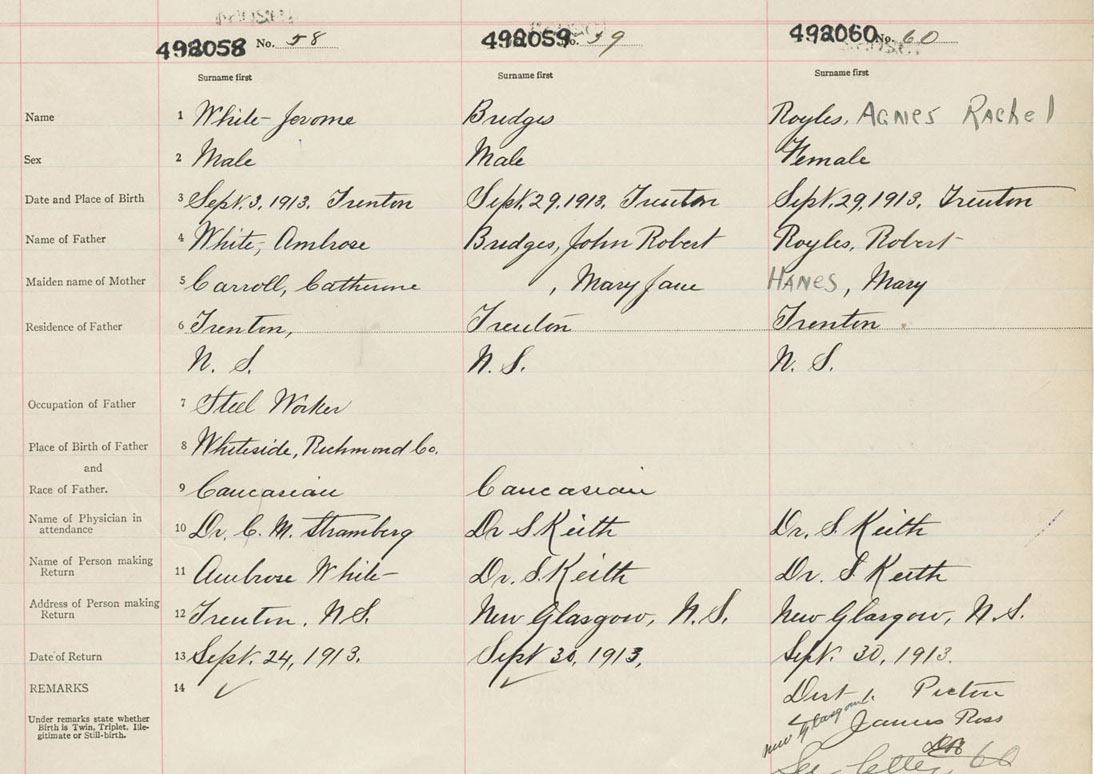 492058 No. 58 492059 No. 59 492060 No. 60
Surname first Surname first Surname first
Name 1 White Jerome Bridges Royles, Agnes Rachel
Sex 2 Male Male Female
Date and Place of Birth 3 Sept. 3, 1913, Trenton Sept. 29, 1913, Trenton Sept. 29, 1913, Trenton
Name of Father 4 White, Ambrose Bridges, John Robert Royles, Robert
Maiden name of Mother 5 Carroll, Catherine , Mary Jane HANES, Mary
Residence of Father 6 Trenton, Trenton Trenton
N. S. N. S. N. S.
Occupation of Father 7 Steel Worker
Place of Birth of Father 8 Whiteside, Richmond Co.
and
Race of Father. 9 Caucasian Caucasian
Name of Physician in
attendance 10 Dr. C. M. Stramberg Dr S Keith Dr. S. Keith
Name of Person making
Return 11 Ambrose White Dr. S. Keith Dr. S. Keith
Address of Person making
Return 12 Trenton, N.S. New Glasgow, N.S. New Glasgow, N.S.
Date of Return 13 Sept. 24, 1913. Sept 30, 1913. Sept. 30, 1913.
REMARKS 14 Dist 1. Pictou
Under remarks state whether
Birth is Twin, Triplet, Ille-
gitimate or Still-birth.
New Glasgow James Ross
See letter, 60